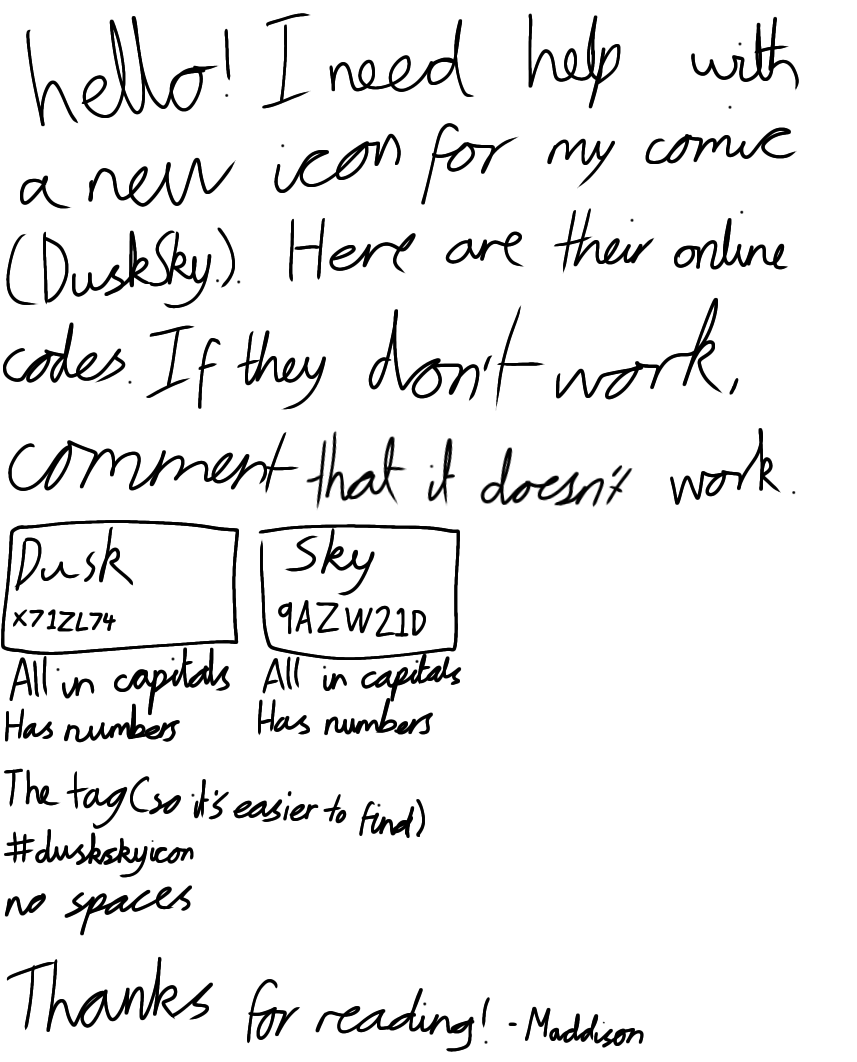 hello! I need help with
a new icon for my comic
(DuskSky). Here are their online
codes. If they don't work,
comment that it doesn't work.
Dusk
X71ZL74
Sky
9AZW21D
All in capitals
Has numbers
All in capitals
Has numbers
The tag (so it's easier to find)
#duskskyicon
no spaces
Thanks for reading! - Maddison